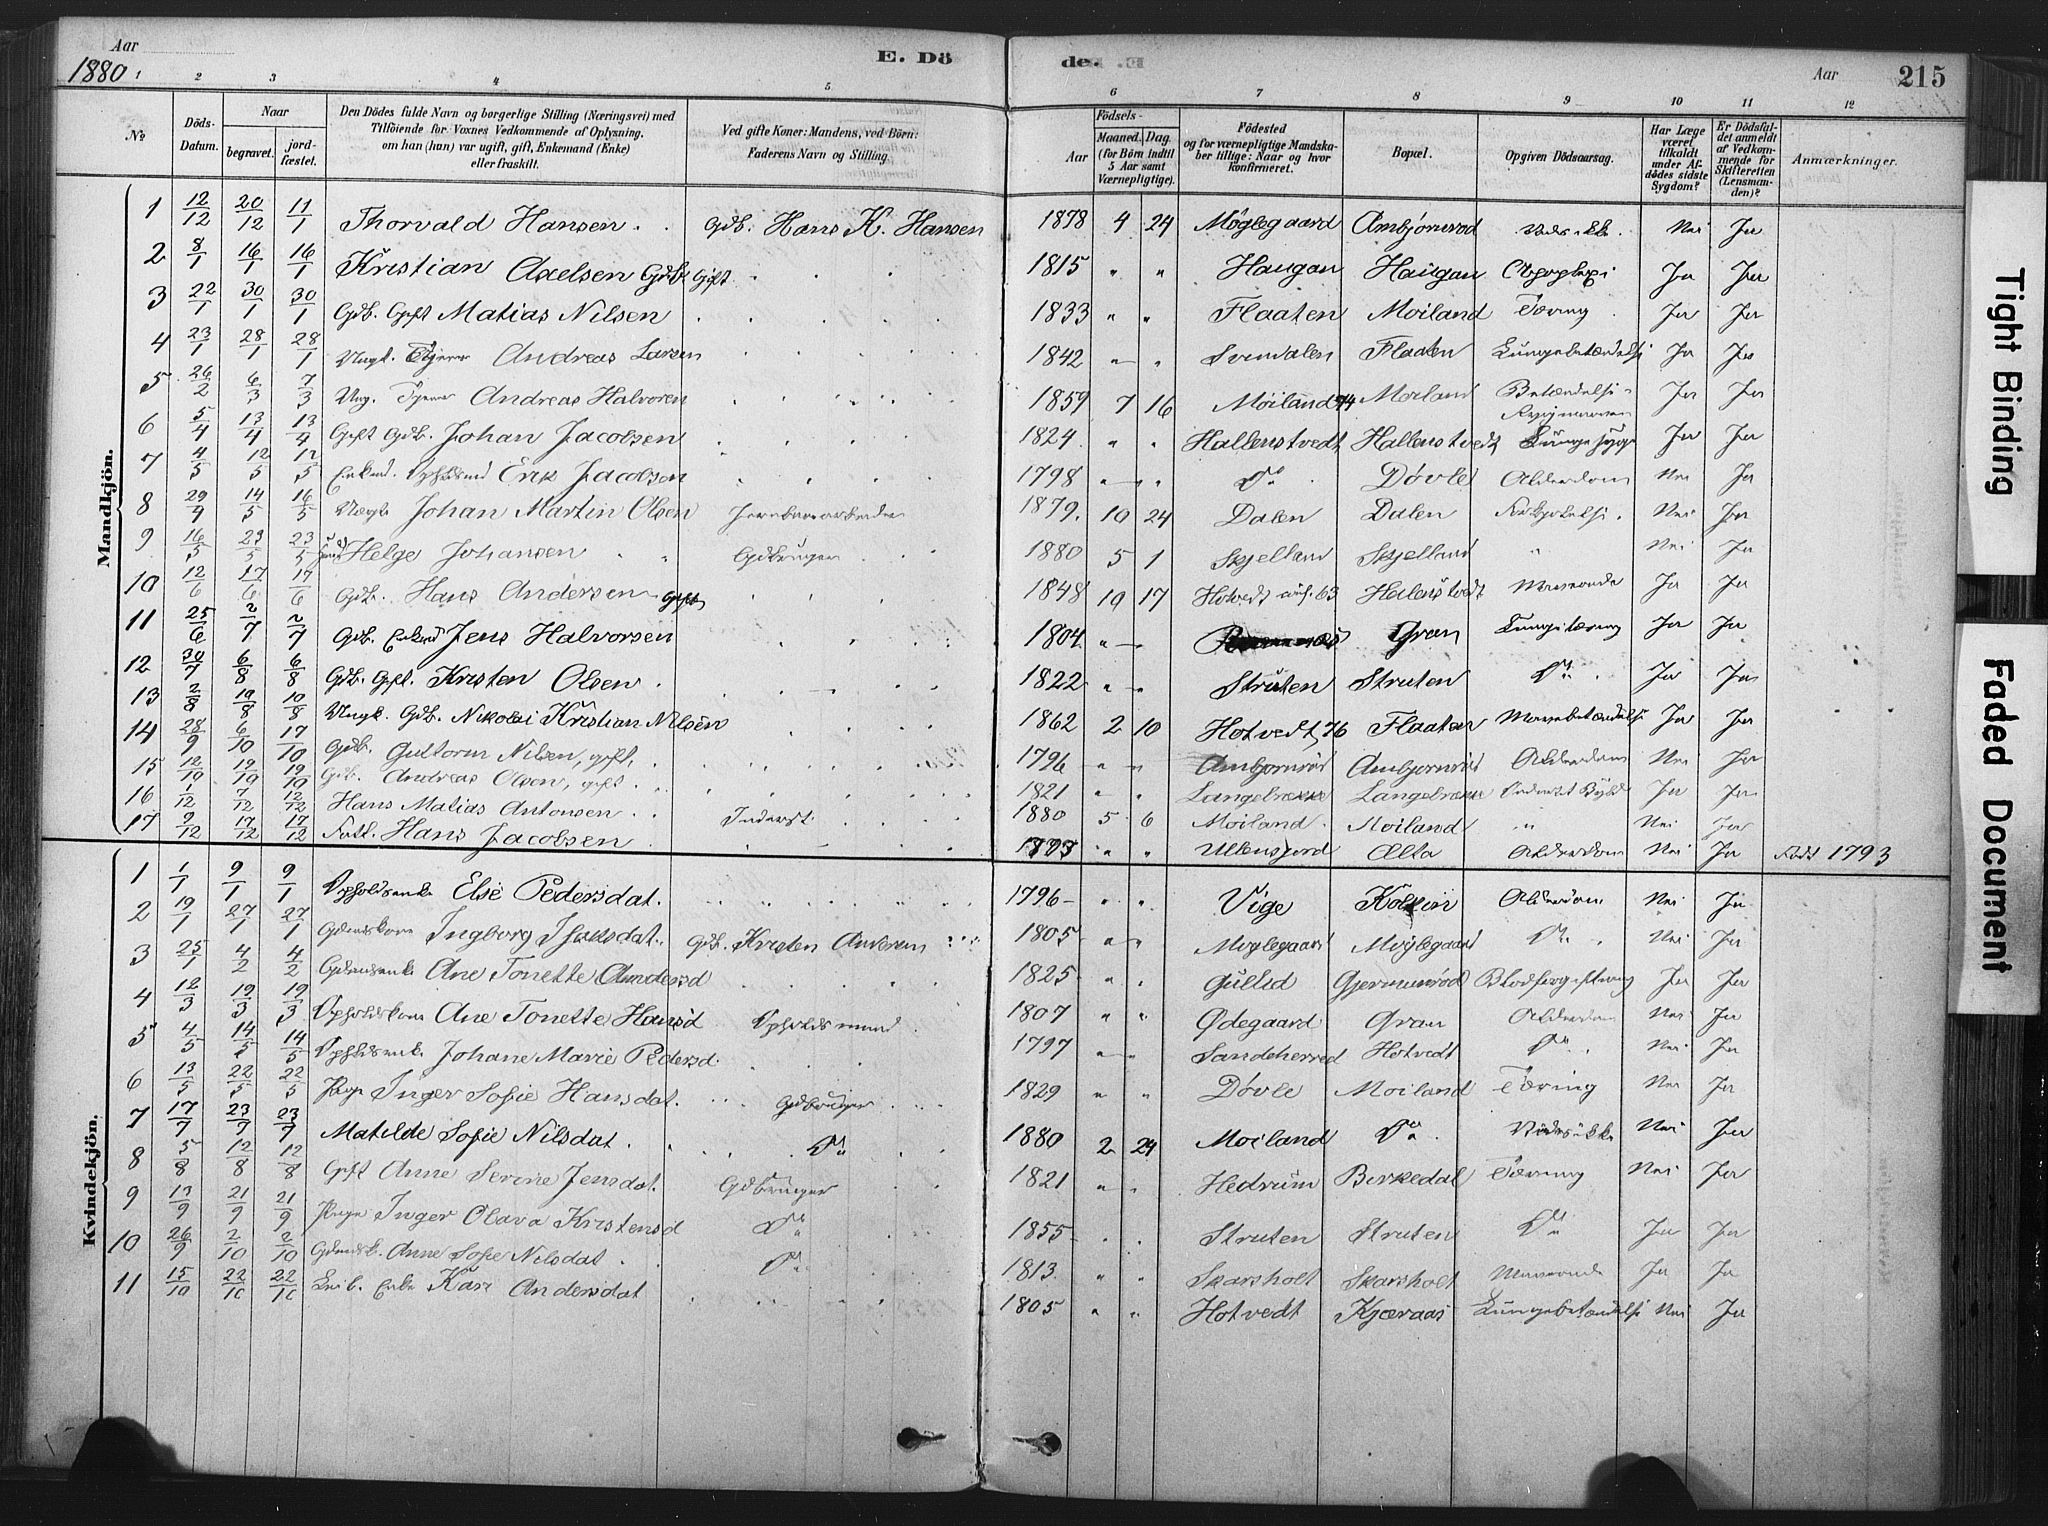 Aar
1880
E. Dö
de.
Aar
215
1 2 3 4 5 6 7 8 9 10 11 12
№
Döds-Datum.
Naar
begravet.
jord-fæstet.
Den Dödes fulde Navn og borgerlige Stilling (Næringsvei) med
Tilföiende for Voxnes Vedkommende af Oplysning,
om han (hun) var ugift, gift, Enkemand (Enke)
eller fraskilt.
Ved gifte Koner: Mandens, ved Börn:
Faderens Navn og Stilling.
Födsels-
Aar
Maaned. Dag.
(for Börn indtil
5 Aar samt
Værnepligtige).
Födested
og for værnepligtige Mandska-
ber tillige: Naar og hvor
konfirmeret.
Bopæl.
Opgiven Dödsaarsag.
Har Læge
været
tilkaldt
under Af-
dödes sidste
Sygdom?
Er Dödsfal-
det anmeldt
af Vedkom-
mende for
Skifteretten
(Lensman-
den)?
Anmærkninger.
Mandkjön.
1 12/12 20/12 11/1 Thorvald Hansen Gdb. Hans K. Hansen 1878 4 24 Møglegaard Ambjörnrød Nei Ja
2 8/1 16/1 16/1 Kristian Axelsen Gdb. Gift 1815 " " Haugan Haugan Apoplexi Ja Ja
3 22/1 30/1 30/1 Gdb. Gift Matias Nilsen 1833 " " Flaaten Moiland Tæring Ja Ja
4 23/1 28/1 28/1 Ungk. Tjener Andreas Larsen 1842 " " Svendalen Flaaten Lungebetændelse Ja Ja
5 26/2 6/3 7/3 Ung. Tjener Andreas Halvorsen 1859 7 16 Moiland 74 Moiland Betændelse i Ja Ja
6 5/4 13/4 13/4 Gift Gdb. Johan Jacobsen 1824 " " Hallenstvedt Hallenstvedt Lungesyge Ja Ja
7 4/5 12/5 12/5 Enkmd. Opholdsmd Erik Jacobsen 1798 " " Do Døvle Alderdom Nei Ja
8 29/4 14/5 16/5 Johan Martin Olsen Jernbanearbeider 1879 10 24 Dalen Dalen Nei Ja
9 16/5 23/5 23/5 Helge Johansen Gdbruger 1880 5 1 Skjelland Skjelland " Nei Ja
10 12/6 17/6 17/6 Gdb. Hans Andersen Gift 1848 10 17 Hotvedt 63 Halenstvedt Ja Ja
11 25/6 2/7 2/7 Gdb. Enkmd Jens Halvorsen 1804 " " Gran Lungetæring Ja Ja
12 30/7 6/8 6/8 Gdb. Gift. Kristen Olsen 1822 " " Struten Struten Do Ja Ja
13 2/8 10/8 10/8 Ungk. Gdb. Nikolai Kristian Nilsen 1862 2 10 Hotvedt, 76 Flaaten Mavebetændelse Ja Ja
14 28/9 6/10 17/10 Gdb. Guttorm Nilsen, gift, 1796 " " Ambjornrød Ambjornrød Alderdom Nei Ja
15 12/10 19/10 19/10 Gdb. Andreas Olsen, gift 1821 " " Langebrække Langebrække Ja Ja
16 1/12 7/12 12/12 Hans Matias Antonsen Inderst 1880 5 6 Moiland Moiland " Nei Ja
17 9/12 17/12 17/12 Fatt. Hans Jacobsen 1793 " " Ullensjord Ælta Alderdom Nei Ja Født 1793
Kvindekjön.
1 1/1 9/1 9/1 Opholdsenke Else Pedersdat. 1796 " " Vige Alderdom Nei Ja
2 19/1 27/1 27/1 Gdmdskone Ingborg Isaksdat. Gdb. Kristen Andersen 1805 " " Møglegaard Møglegaard Do Nei Ja
3 25/1 4/2 4/2 Gdmdsenke Ane Tonette Andersd 1825 " " Gullid Gjermundrød Blodforgiftning Ja Ja
4 12/3 19/3 19/3 Opholdskone Ane Tonette Hansd Opholdsmand 1807 " " Ødegaard Gran Alderdom Nei Ja
5 4/5 14/5 14/5 Opholdsenke Johane Marie Pedersd 1797 " " Sandeherred Hotvedt Do Nei Ja
6 13/5 22/5 22/5 Pige Inger Sofie Hansdat. Gdbruger 1829 " " Døvle Moiland Tæring Nei Ja
7 17/7 23/7 23/7 Matilde Sofie Nilsdat. Do 1880 2 24 Moiland Do Nei Ja
8 5/8 12/8 12/8 Gift Anne Serine Jensdat. Gdbruger 1821 " " Hedrum Birkedal Tæring Nei Ja
9 13/9 21/9 21/9 Pige Inger Olava Kristensd Do 1855 " " Struten Struten Do Ja Ja
10 26/9 2/10 2/10 Gdmdsk. Anne Sofie Nilsdat Do 1813 " " Skarsholt Skarsholt Ja Ja
11 15/10 22/10 22/10 Leib. Enke Kari Andersdat 1805 " " Hotvedt Kjæraas Lungebetændelse Nei Ja
Tight Binding
Faded Document